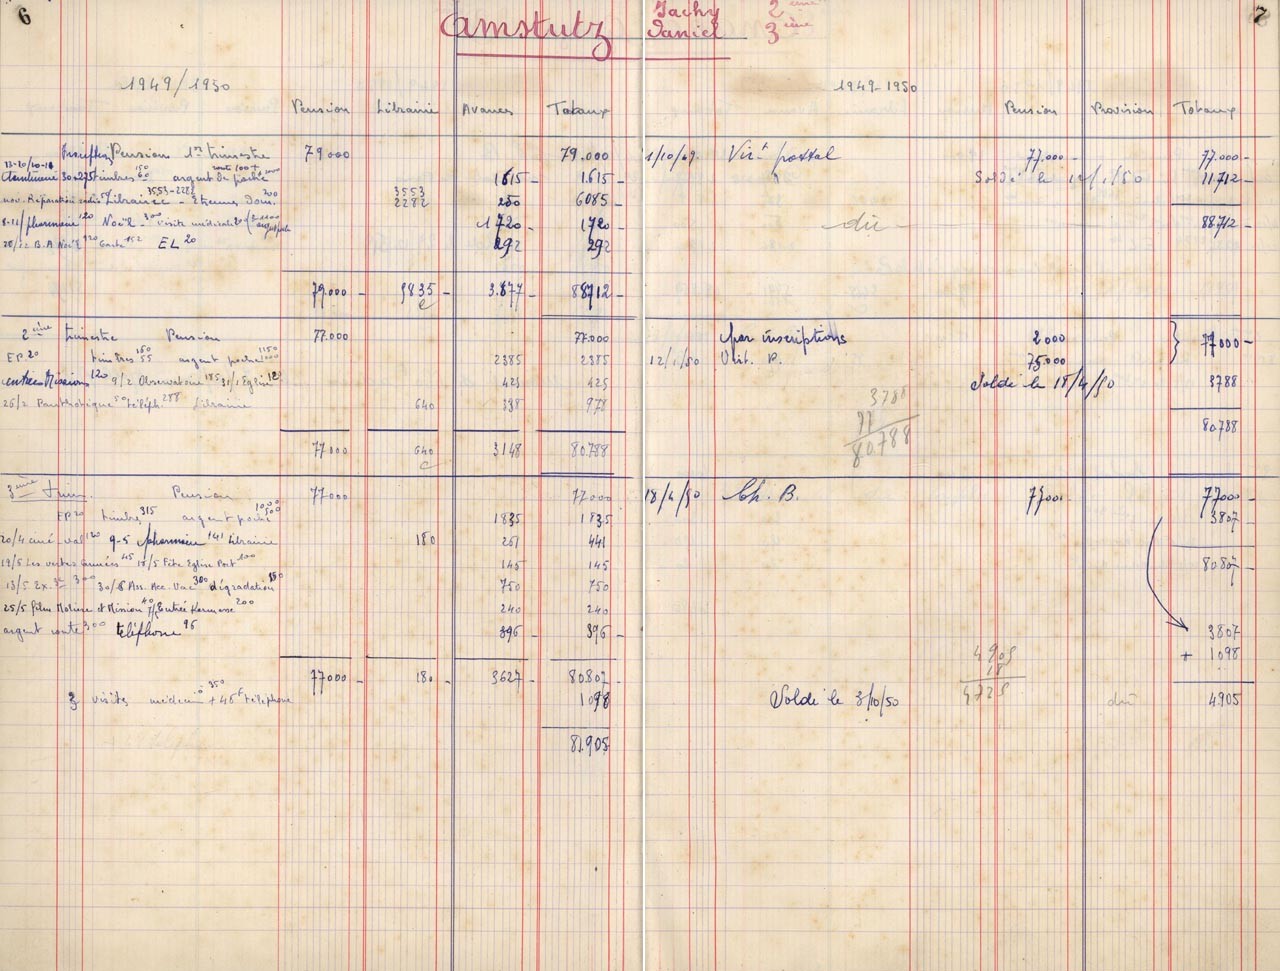 6
7
Amstutz Jacky 2ème
Daniel 3ème
1949/1950
Pension Librairie Avances Totaux
Pension 1er trimestre 79000 79.000
timbres argent de poche 1615 - 1.615 -
Librairie - Etrennes Dom. 200 3553 2282 250 6085
8-11/pharmacie 120 Noël - 300 visite médicale 1720 1720 -
20/12 B.A. Noël EL 20 292 292
79.000 - 5835 - 3.877 - 88712 -
2ème trimestre Pension 77.000 77.000
EP. 20 timbres argent poche 2385 2385
entrées Missions 120 9/2 Observatoire 185 31/1 Eglise 120 425 425
26/2 Panthotique 50 téléph. 288 Librairie 640 338 978
77000 640 3148 80.788
3ème Trim. Pension 77000 77000
EP 20 timbres 315 argent poche 1000 500 1835 1835
20/4 ciné-val 120 9-5 pharmacie 141 Librairie 180 261 441
19/5 Les vertes années 45 18/5 Fête Eglise Port 100 145 145
13/5 Ex. 300 30/6 Ass. Acc. Vac 300 dégradation 150 750 750
25/5 film Molière et Mission 40 Entrée Kermesse 200 240 240
argent route 300 téléphone 96 396 - 396 -
77000 - 180 - 3627 - 80807 -
3 visites médecin 350 + 46f téléphone 1098
81.905
1949-1950
Pension Provision Totaux
1/10/49 Virt postal 77.000 - 77.000 -
Soldé le 12/1/50 11712 -
dû 88712 -
par inscriptions 2000
12/1/50 Virt. P. 75.000 } 77000 -
Soldé le 18/4/50 3788
3788
77
80.788
80.788
18/4/50 Ch. B. 77000. 77000 -
3807 -
80807 -
3807
+ 1098
4905
18
4725
Soldé le 3/10/50 dû 4.905